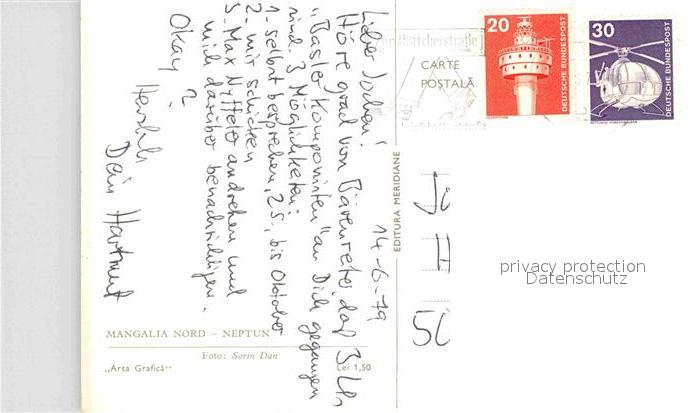 14-6-79
Lieber Jochen!
Höre grad von Bärenreiter, daß 3 LPs
"Basler Komponisten" an Dich gegangen
sind. 3 Möglichkeiten:
1- selbst besprechen, 25, bis Oktober
2- mir schicken
3. Max Nyffeler andrehen und
mich darüber benachrichtigen.
Okay?
Herzlich
Dein Hartmut
MANGALIA NORD – NEPTUN
Foto: Sorin Dan
„Arta Grafică"
Lei 1,50
EDITURA MERIDIANE
CARTE
POSTALĂ
Böttcherstraße
20
DEUTSCHE BUNDESPOST
30
DEUTSCHE BUNDESPOST
privacy protection
Datenschutz